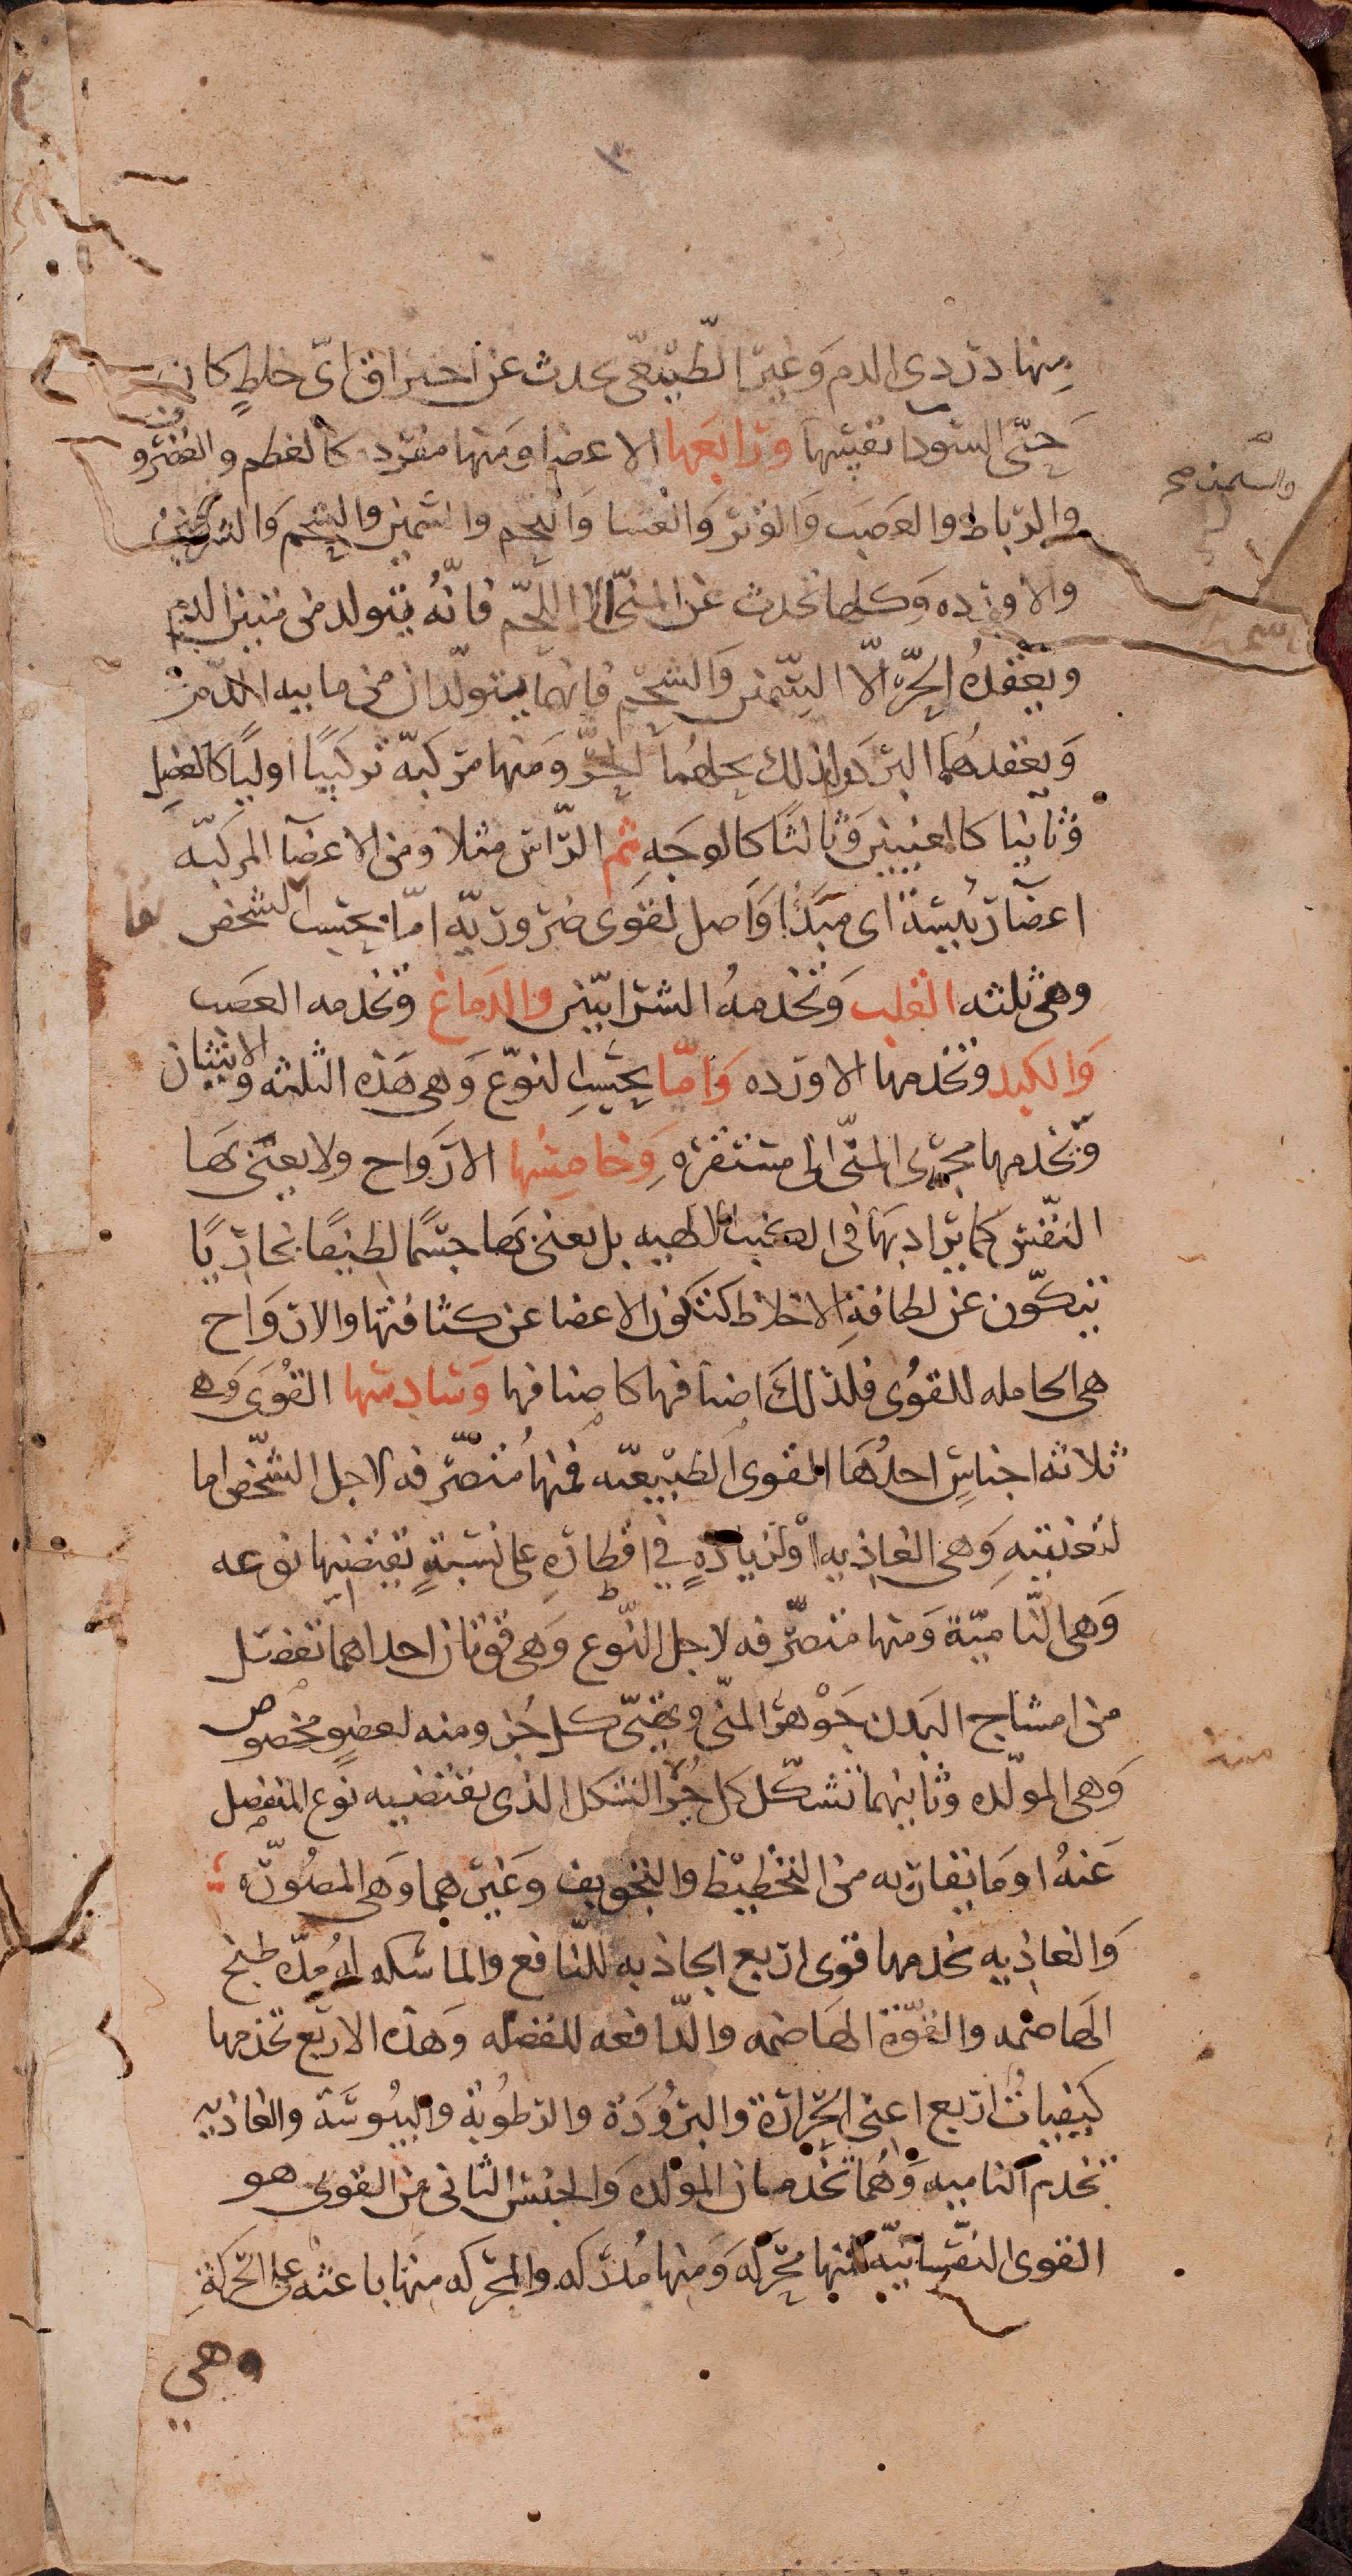 منها دردي الدم وغير الطبيعى يحدث عن احتراق اىّ خلطٍ كان
حتّى السودا نفسها ورابعها الاعضا ومنها مفرد كالعظم والغضروف
والرباط والعصب والوتر والغشا واللحم والسمين والشحم والشرايين
والاورده وكلها تحدث عن المنىّ الا اللحم فانّهُ يتولد من متين الدم
ويعقدهُ الحرّ الّا السّمين والشحم فانهما يتولّدان من مايية الدم
ويعقدهما البرد ولذلك يحلهما الحرّ ومنها مركبة تركيبًا اوليًا كالعضل
وثانيا كالعينين وثالثًا كالوجه ثم الرّاس مثلا ومن الاعضآ المركبّه
اعضآ رئيسة اى مبدًا واصل لقوى ضروريّه امّا بحسب الشخص
وهى ثلثه القلب وتخدمهُ الشرايين والدماغ وتخدمه العصب
والكبد وتخدمها الاورده وامّا بحسب النوع وهى هذه الثلثه والانثيان
وتخدمها مجرى المنىّ الى مستقره وخامسُها الارواح ولا يعنى بها
النّفس كما يراد بها فى الكتب الالهيه بل يعنى بها جسمًا لطيفًا بخاريًا
يتكوّن عن لطافةِ الاخلاط كتكون الاعضا عن كثافتها والارواح
هى الحامله للقُوى فلذلكَ اصنافها كاصنافها وسادسها القُوى وهى
ثلاثه اجناسٍ احدُها القوى الطبيعيّه فمنها متصرّفه لاجل الشّخص اما
لتغذيتهِ وهى الغاذيه او لزيادةٍ في اقطارهِ على نسبةٍ تقتضيها نوعه
وهى النّاميّة ومنها متصرّفه لاجل النّوع وهى قوتان احداهما تفصل
من امشاج البدن جوهر المنّى وتهيّى كل جزو منه لعضوٍ مخصوص
وهى المولّده وثانيهما تشكّل كل جزءٍ الشكل الذى يقتضيه نوع المنفصل
عنهُ او ما يقاربه من التخطيط والتجويف وغيرهما وهى المصوّره
والغاذيه تخدمها قوى اربع الجاذبه للنّافع والماسكه له مُدّة طبخ
الهاضمه والقوّة الهاضمه والدّافعه للفضله وهذه الاربع تخدمها
كيفياتُ اربع اعنى الحرارة والبرُودَة والرطُوبة واليبُوسَة والغاذيه
تخدم الناميه وهُما تخدمان المولّده والجنس الثانى من القوى هو
القوى النّفسانيّه فمنها محركه ومنها مُدركه والمحركه منها باعثه على الحركةِ
وهي
والسمين صح